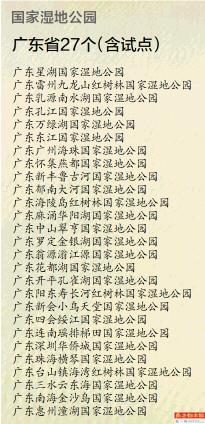 国家湿地公园
广东省27个(含试点)
广东星湖国家湿地公园
广东雷州九龙山红树林国家湿地公园
广东乳源南水湖国家湿地公园
广东孔江国家湿地公园
广东万绿湖国家湿地公园
广东东江国家湿地公园
广东广州海珠国家湿地公园
广东怀集燕都国家湿地公园
广东新丰鲁古河国家湿地公园
广东郁南大河国家湿地公园
广东海陵岛红树林国家湿地公园
广东麻涌华阳湖国家湿地公园
广东中山翠亨国家湿地公园
广东罗定金银湖国家湿地公园
广东翁源滃江源国家湿地公园
广东花都湖国家湿地公园
广东开平孔雀湖国家湿地公园
广东阳东寿长河红树林国家湿地公园
广东新会小鸟天堂国家湿地公园
广东四会绥江国家湿地公园
广东连南瑶排梯田国家湿地公园
广东深圳华侨城国家湿地公园
广东珠海横琴国家湿地公园
广东台山镇海湾红树林国家湿地公园
广东三水云东海国家湿地公园
广东南海金沙岛国家湿地公园
广东惠州潼湖国家湿地公园